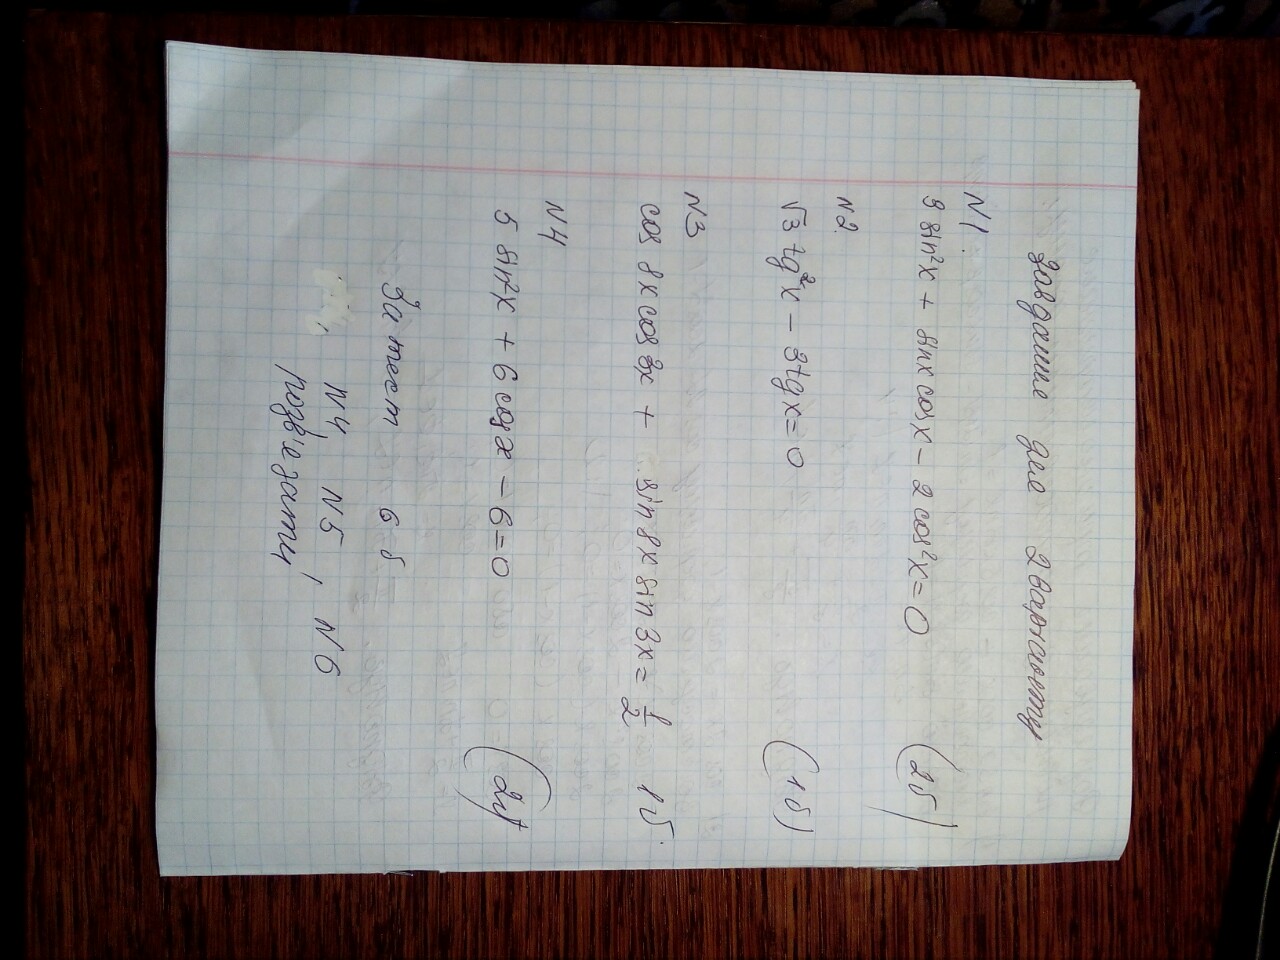 Завдання для 2 варіанту
N1.
3 sin²x + sinx cosx - 2 cos²x = 0 (2б)
N2.
√3 tg²x - 3tgx = 0 (1б)
N3
cos 8x cos 3x + sin 8x sin 3x = 1/2 1б.
N4
5 sin²x + 6 cosx - 6 = 0 (2б)
За тест 6 б
N4, N5, N6
розв'язати